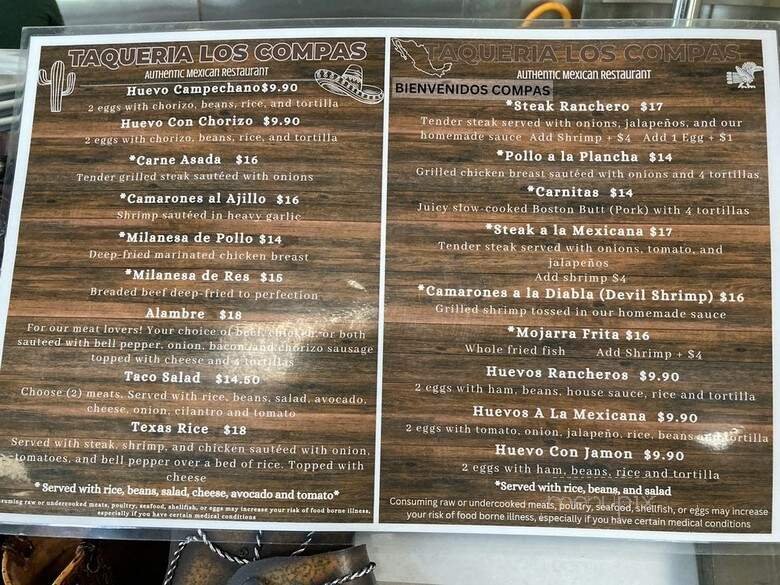 TAQUERIA LOS COMPAS
AUTHENTIC MEXICAN RESTAURANT
Huevo Campechano $9.90
2 eggs with chorizo, beans, rice, and tortilla
Huevo Con Chorizo $9.90
2 eggs with chorizo, beans, rice, and tortilla
*Carne Asada $16
Tender grilled steak sautéed with onions
*Camarones al Ajillo $16
Shrimp sautéed in heavy garlic
*Milanesa de Pollo $14
Deep-fried marinated chicken breast
*Milanesa de Res $15
Breaded beef deep-fried to perfection
Alambre $18
For our meat lovers! Your choice of beef, chicken, or both
sautéed with bell pepper, onion, bacon, and chorizo sausage
topped with cheese and 4 tortillas
Taco Salad $14.50
Choose (2) meats. Served with rice, beans, salad, avocado,
cheese, onion, cilantro and tomato
Texas Rice $18
Served with steak, shrimp, and chicken sautéed with onion,
tomatoes, and bell pepper over a bed of rice. Topped with
cheese
*Served with rice, beans, salad, cheese, avocado and tomato*
suming raw or undercooked meats, poultry, seafood, shellfish, or eggs may increase your risk of food borne illness,
especially if you have certain medical conditions
TAQUERIA LOS COMPAS
AUTHENTIC MEXICAN RESTAURANT
BIENVENIDOS COMPAS
*Steak Ranchero $17
Tender steak served with onions, jalapeños, and our
homemade sauce Add Shrimp + $4 Add 1 Egg + $1
*Pollo a la Plancha $14
Grilled chicken breast sautéed with onions and 4 tortillas
*Carnitas $14
Juicy slow-cooked Boston Butt (Pork) with 4 tortillas
*Steak a la Mexicana $17
Tender steak served with onions, tomato, and
jalapeños
Add shrimp $4
*Camarones a la Diabla (Devil Shrimp) $16
Grilled shrimp tossed in our homemade sauce
*Mojarra Frita $16
Whole fried fish Add Shrimp + $4
Huevos Rancheros $9.90
2 eggs with ham, beans, house sauce, rice and tortilla
Huevos A La Mexicana $9.90
2 eggs with tomato, onion, jalapeño, rice, beans and tortilla
Huevo Con Jamon $9.90
2 eggs with ham, beans, rice and tortilla
*Served with rice, beans, and salad
Consuming raw or undercooked meats, poultry, seafood, shellfish, or eggs may increase
your risk of food borne illness, especially if you have certain medical conditions